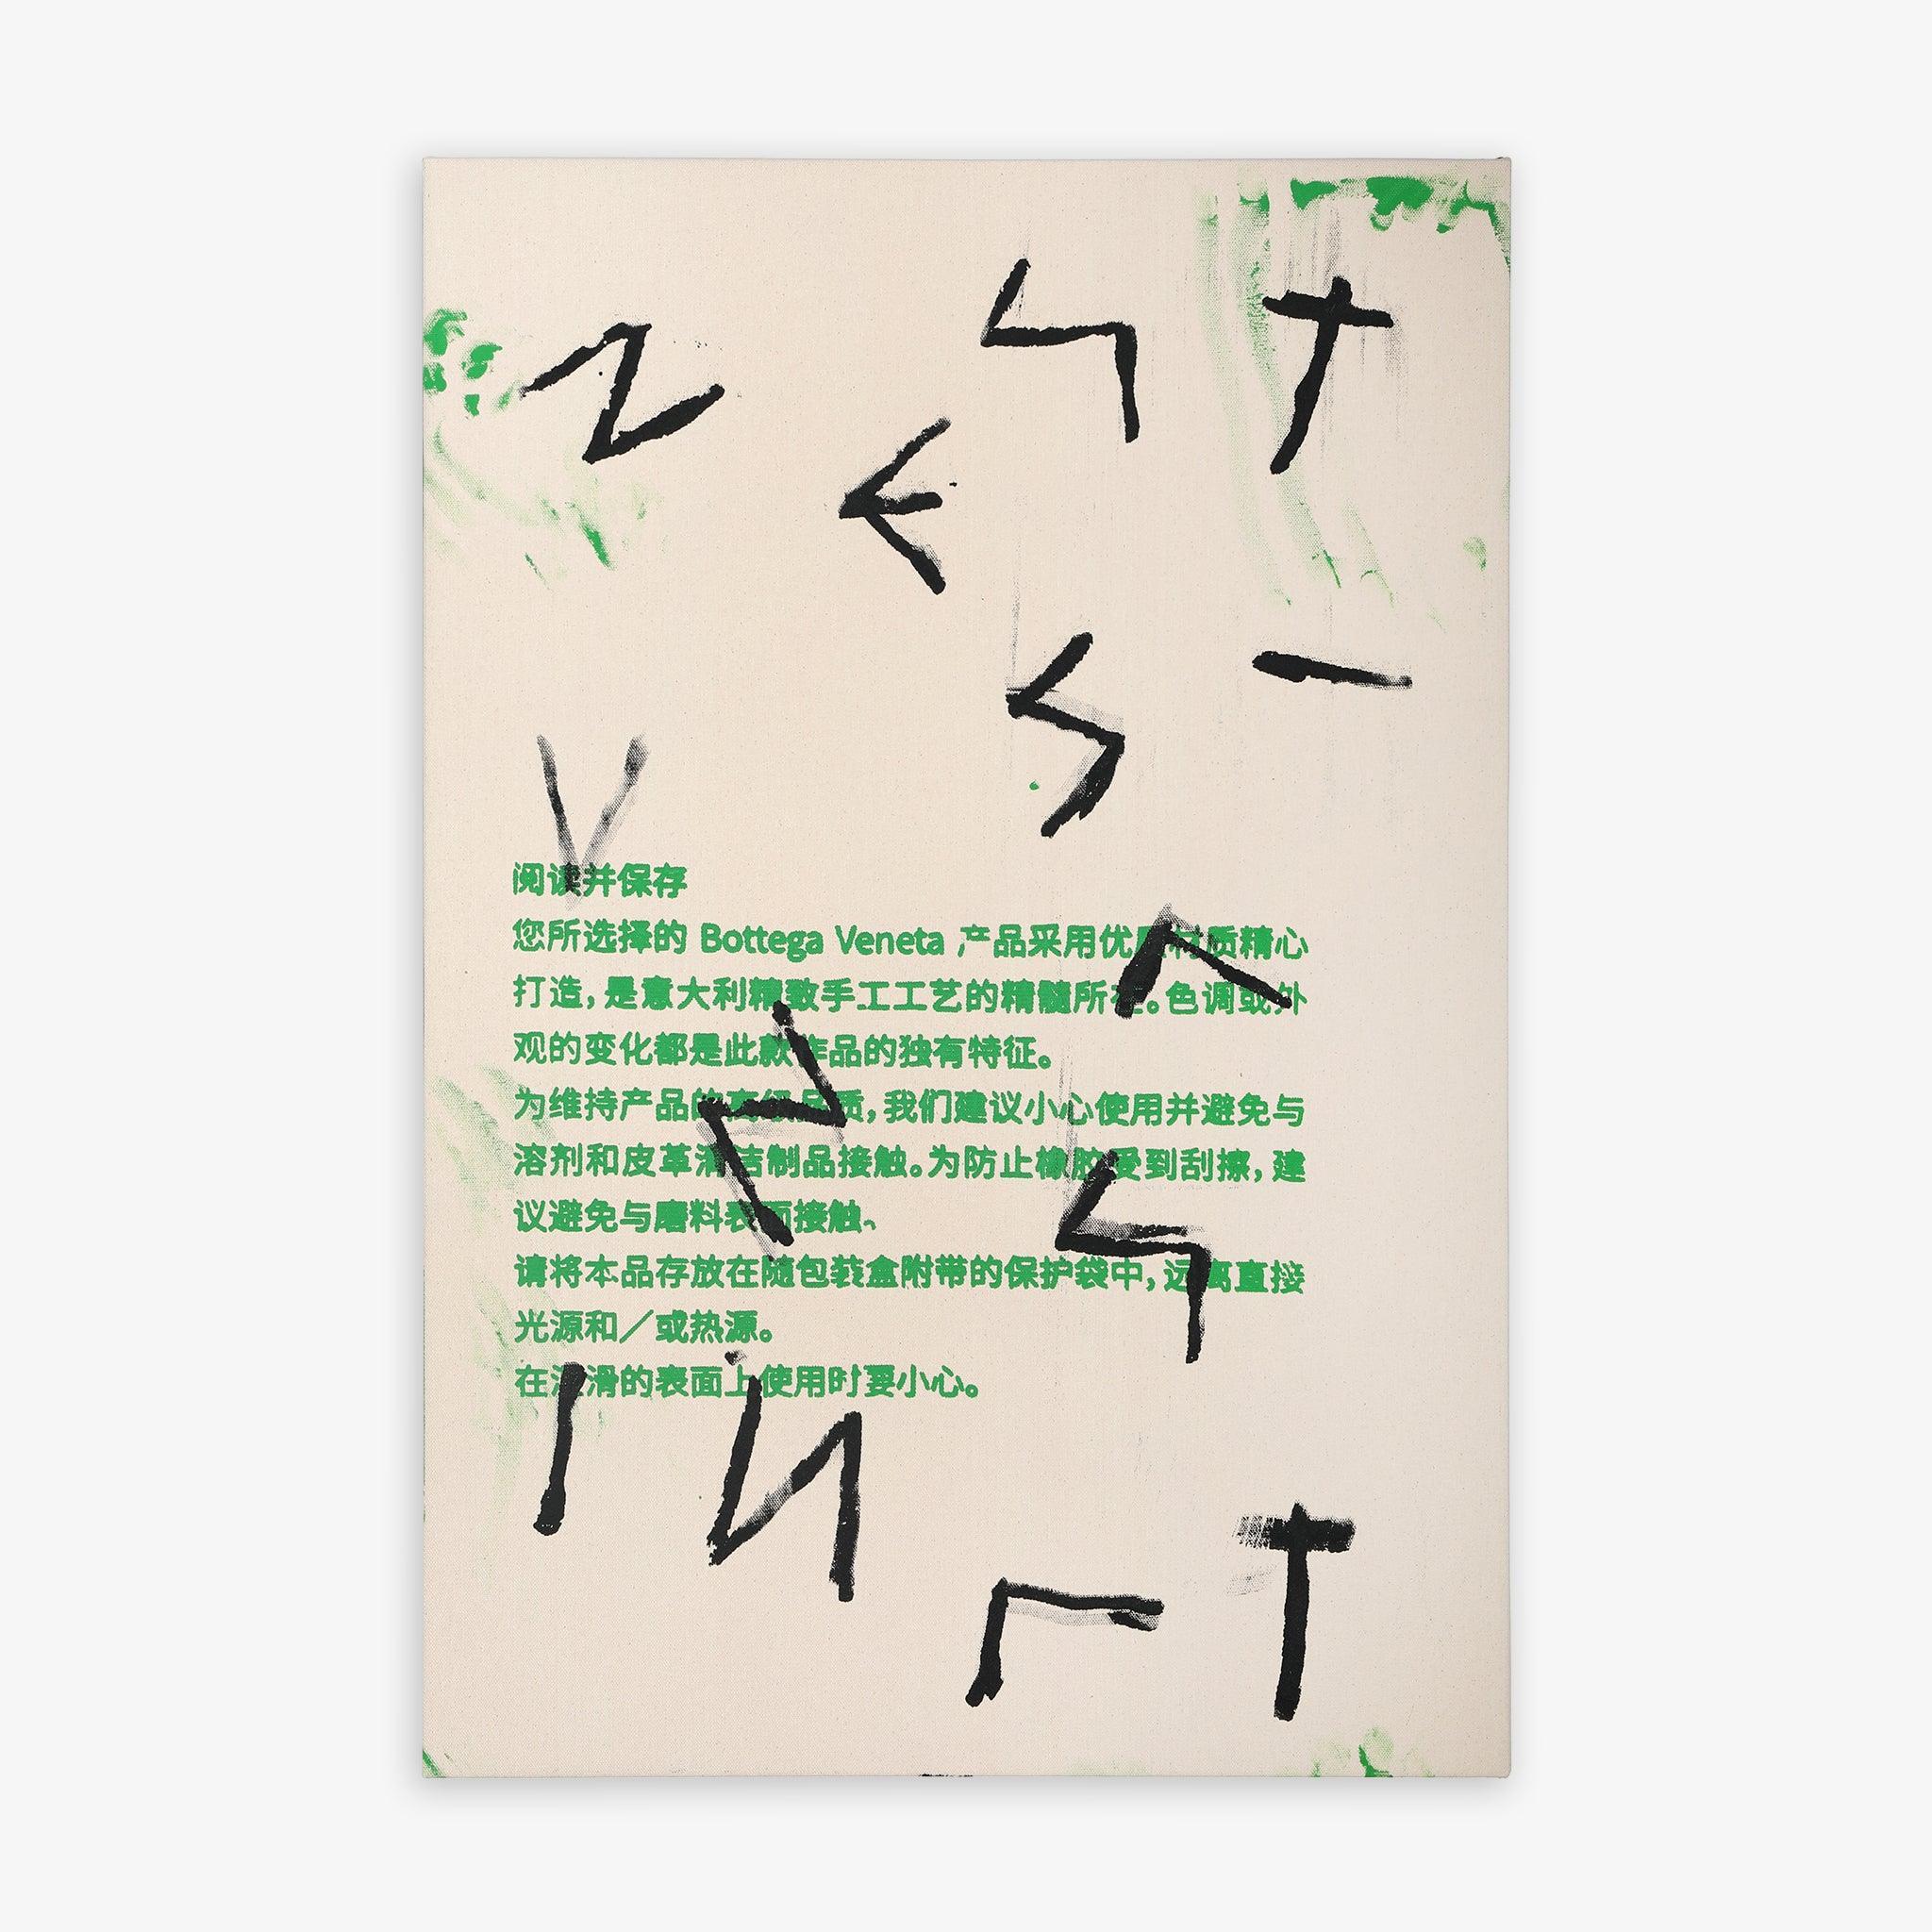 阅读并保存
您所选择的 Bottega Veneta 产品采用优质材质精心
打造，是意大利精致手工工艺的精髓所在。色调或外
观的变化都是此款作品的独有特征。
为维持产品的高级品质，我们建议小心使用并避免与
溶剂和皮革清洁制品接触。为防止橡胶受到刮擦，建
议避免与磨料表面接触。
请将本品存放在随包装盒附带的保护袋中，远离直接
光源和／或热源。
在湿滑的表面上使用时要小心。